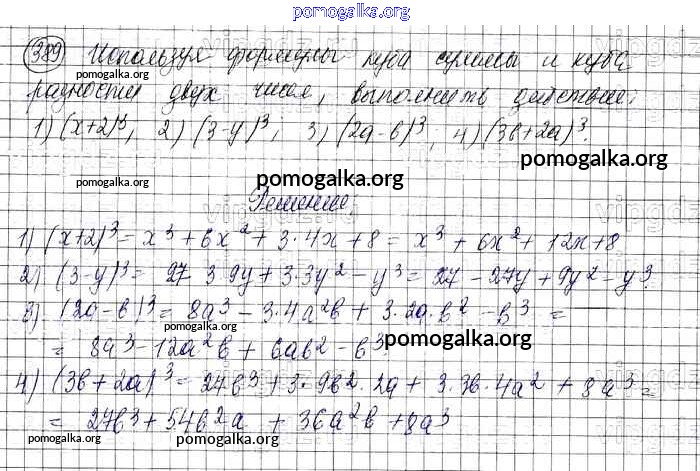 pomogalka.org
389 Используя формулы куба суммы и куба
pomogalka.org
разности двух чисел, выполнить действие:
pomogalka.org
1) (x+2)³, 2) (3-y)³; 3) (2a-b)³, 4) (3b+2a)³.
pomogalka.org
pomogalka.org pomogalka.org
Решение.
1) (x+2)³ = x³ + 6x² + 3·4x + 8 = x³ + 6x² + 12x + 8
pomogalka.org
2) (3-y)³ = 27 3·9y + 3·3y² - y³ = 27 - 27y + 9y² - y³.
pomogalka.org
3) (2a-b)³ = 8a³ - 3·4a²b + 3·2a·b² - b³ =
pomogalka.org
= 8a³ - 12a²b + 6ab² - b³.
pomogalka.org
pomogalka.org
4) (3b+2a)³ = 27b³ + 3·9b²·2a + 3·3b·4a² + 8a³ =
= 27b³ + 54b²a + 36a²b + 8a³
pomogalka.org pomogalka.org pomogalka.org